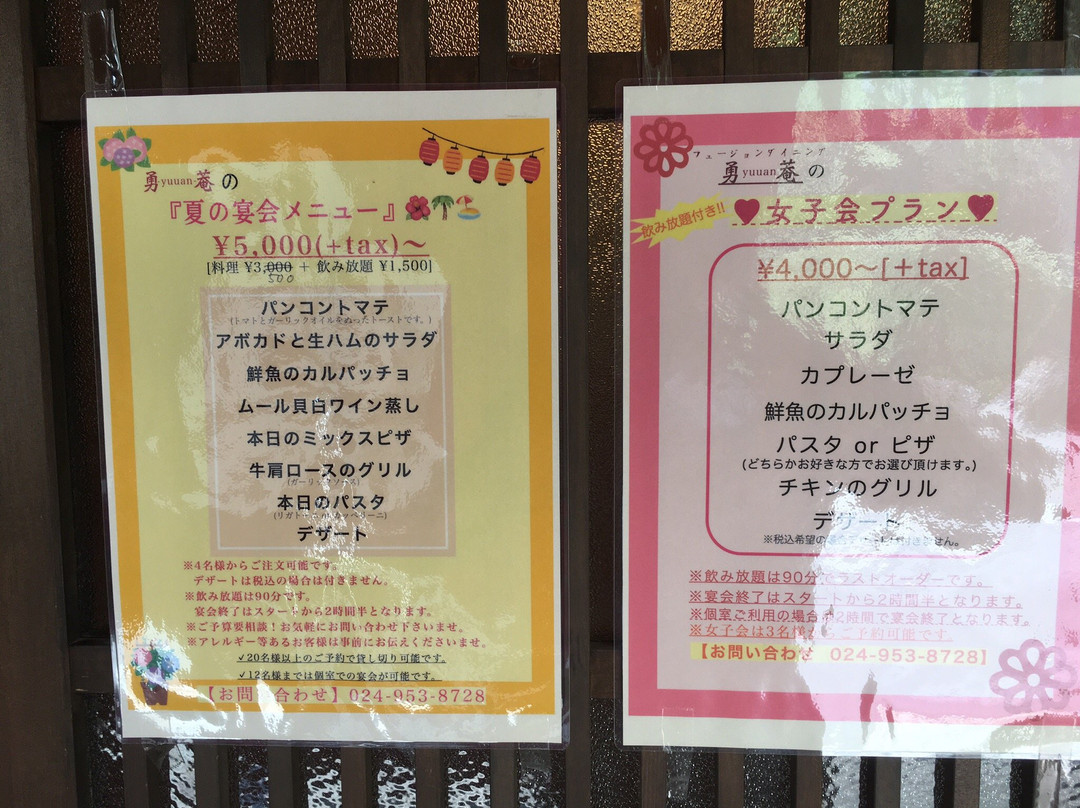 勇yuuan菴の
『夏の宴会メニュー』
¥5,000(+tax)～
[料理 ¥3,000 + 飲み放題 ¥1,500]
500
パンコントマテ
(トマトとガーリックオイルをぬったトーストです。)
アボカドと生ハムのサラダ
鮮魚のカルパッチョ
ムール貝白ワイン蒸し
本日のミックスピザ
牛肩ロースのグリル
(ガーリックソース)
本日のパスタ
デザート
※4名様からご注文可能です。
デザートは税込の場合は付きません。
※飲み放題は90分です。
宴会終了はスタートから2時間半となります。
※ご予算要相談！お気軽にお問い合わせ下さいませ。
※アレルギー等あるお客様は事前にお伝えくださいませ。
✓20名様以上のご予約で貸し切り可能です。
✓12名様までは個室での宴会が可能です。
【お問い合わせ】024-953-8728
フュージョンダイニング
勇yuuan菴の
飲み放題付き!!
♥女子会プラン♥
¥4,000～[＋tax]
パンコントマテ
サラダ
カプレーゼ
鮮魚のカルパッチョ
パスタ or ピザ
(どちらかお好きな方でお選び頂けます。)
チキンのグリル
デザート
※税込希望の場合デザートは付きません。
※飲み放題は90分でラストオーダーです。
※宴会終了はスタートから2時間半となります。
※個室ご利用の場合は2時間で宴会終了となります。
※女子会は3名様からご予約可能です。
【お問い合わせ 024-953-8728】